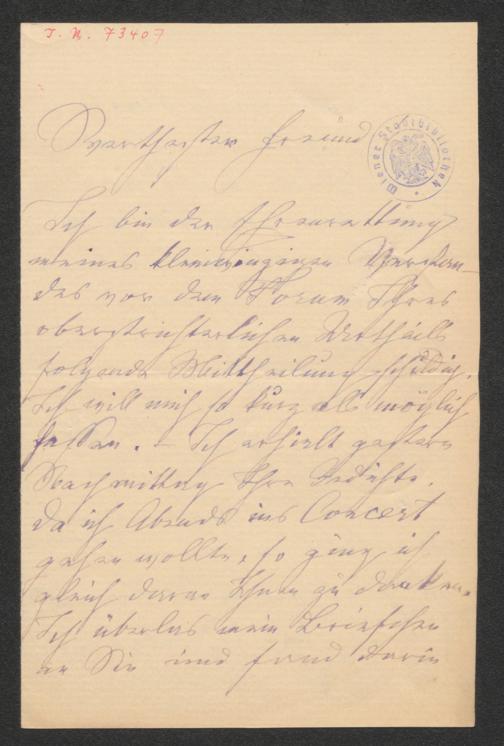 I. N. 73407
Werthester Freund
Wiener Stadtbibliothek
Ich bin der Ehrenrettung
meines kleinwinzigen Verstan-
des vor dem Forum Ihres
oberstrichterlichen Urtheils
folgende Mittheilung schuldig.
Ich will mich so kurz als möglich
fassen. – Ich erhielt gestern
Nachmittag Ihre Gedichte.
Da ich Abends ins Concert
gehen wollte, so ging ich
gleich daran Ihnen zu danken.
Ich überlas mein Briefchen
an Sie und fand darin